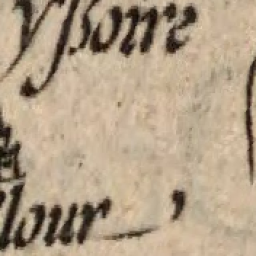 yßoire
lour,